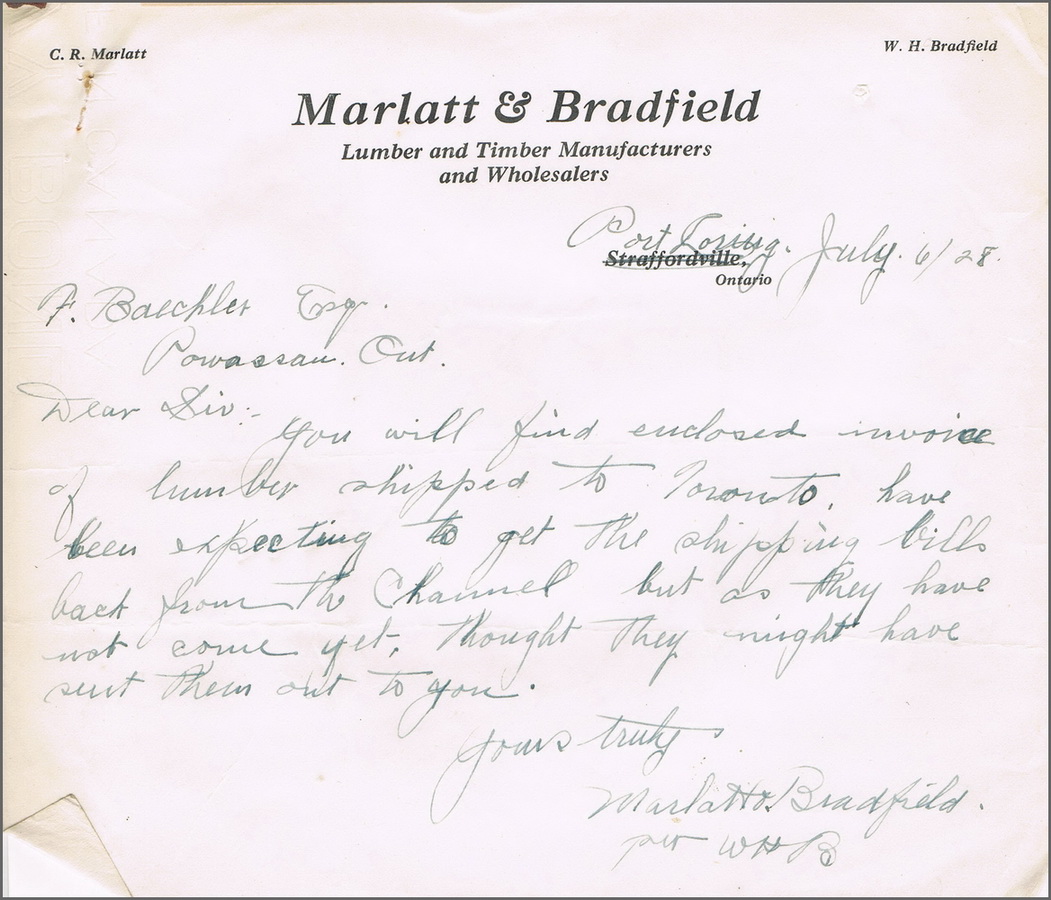 C. R. Marlatt
W. H. Bradfield
Marlatt & Bradfield
Lumber and Timber Manufacturers
and Wholesalers
Port Loring. July. 6/28.
Straffordville,
Ontario
F. Baechler Esq.
Powassan. Ont.
Dear Sir:-
You will find enclosed invoice
of lumber shipped to Toronto, have
been expecting to get the shipping bills
back from the Channel but as they have
not come yet, thought they might have
sent them out to you.
Yours truly
Marlatt & Bradfield.
per WHB